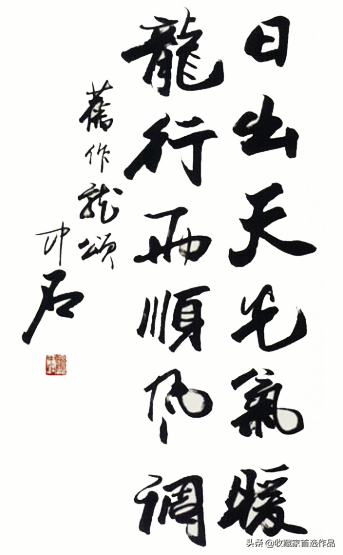 日出天光氣暖
龍行雨順風調
舊作龍頌
中石
头条@收藏家首选作品